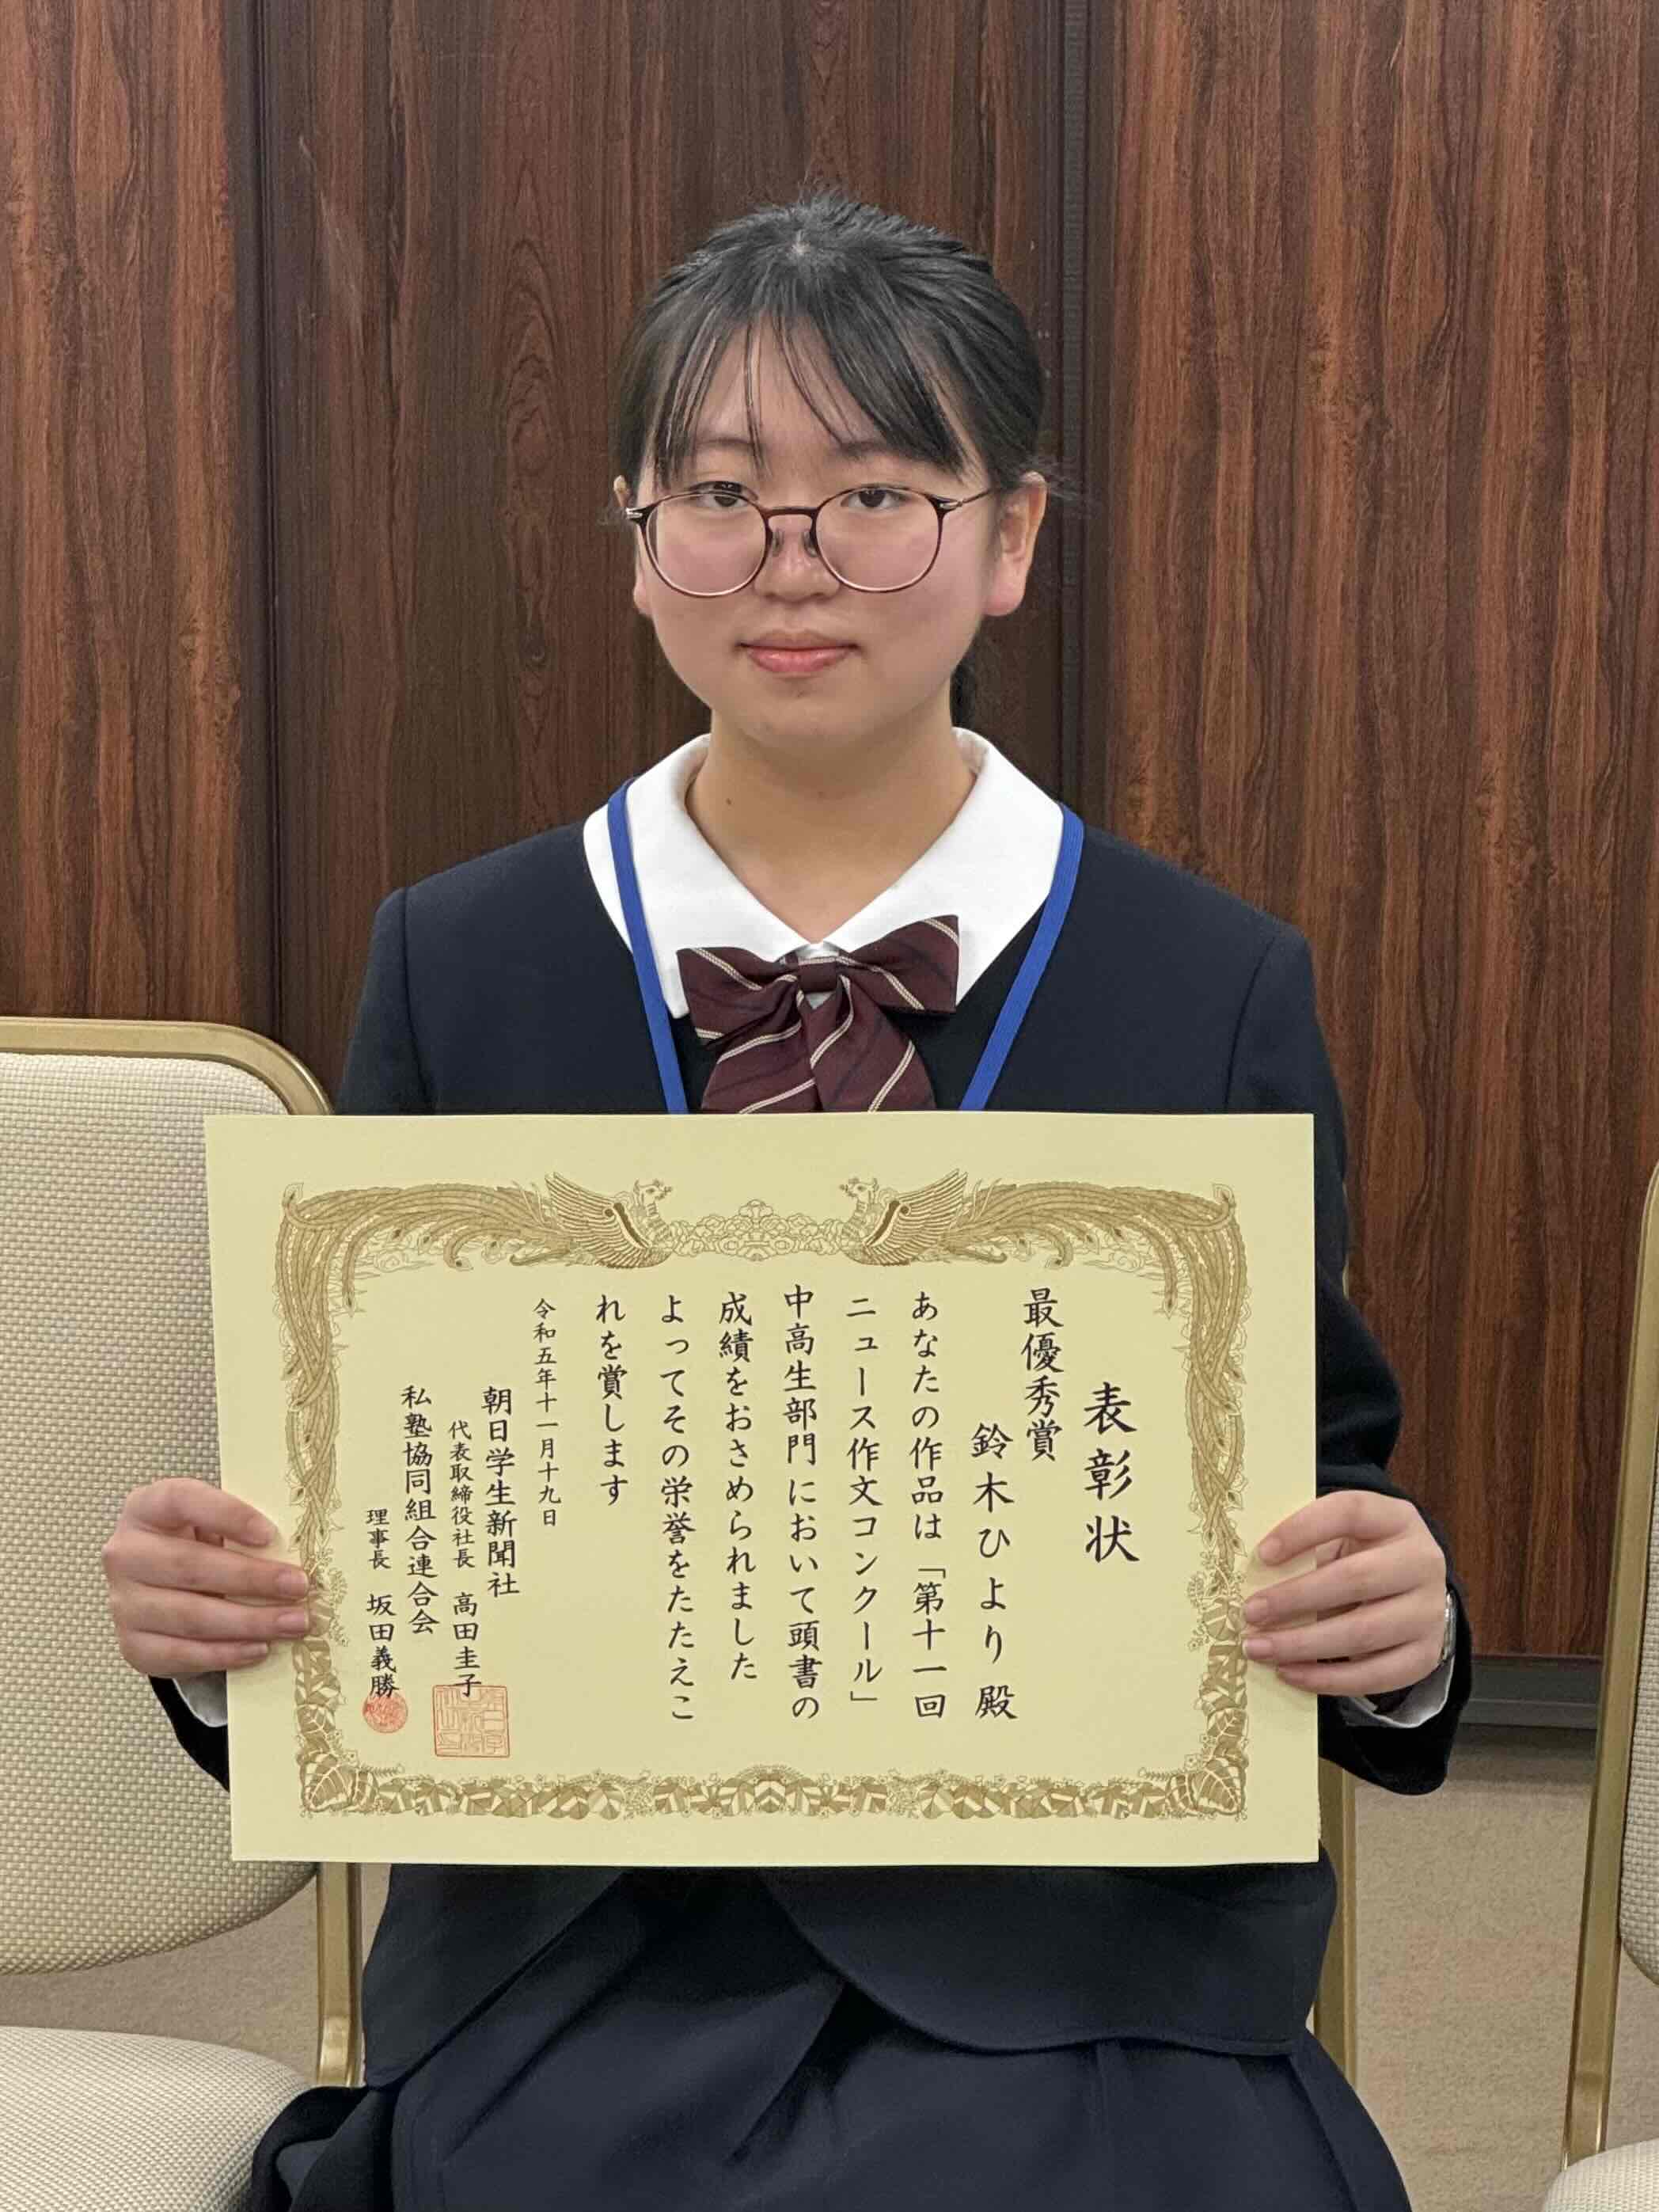 表彰状
最優秀賞
鈴木ひより殿
あなたの作品は「第十一回
ニュース作文コンクール」
中高生部門において頭書の
成績をおさめられました
よってその栄誉をたたえこ
れを賞します
令和五年十一月十九日
朝日学生新聞社
代表取締役社長 高田圭子
私塾協同組合連合会
理事長 坂田義勝